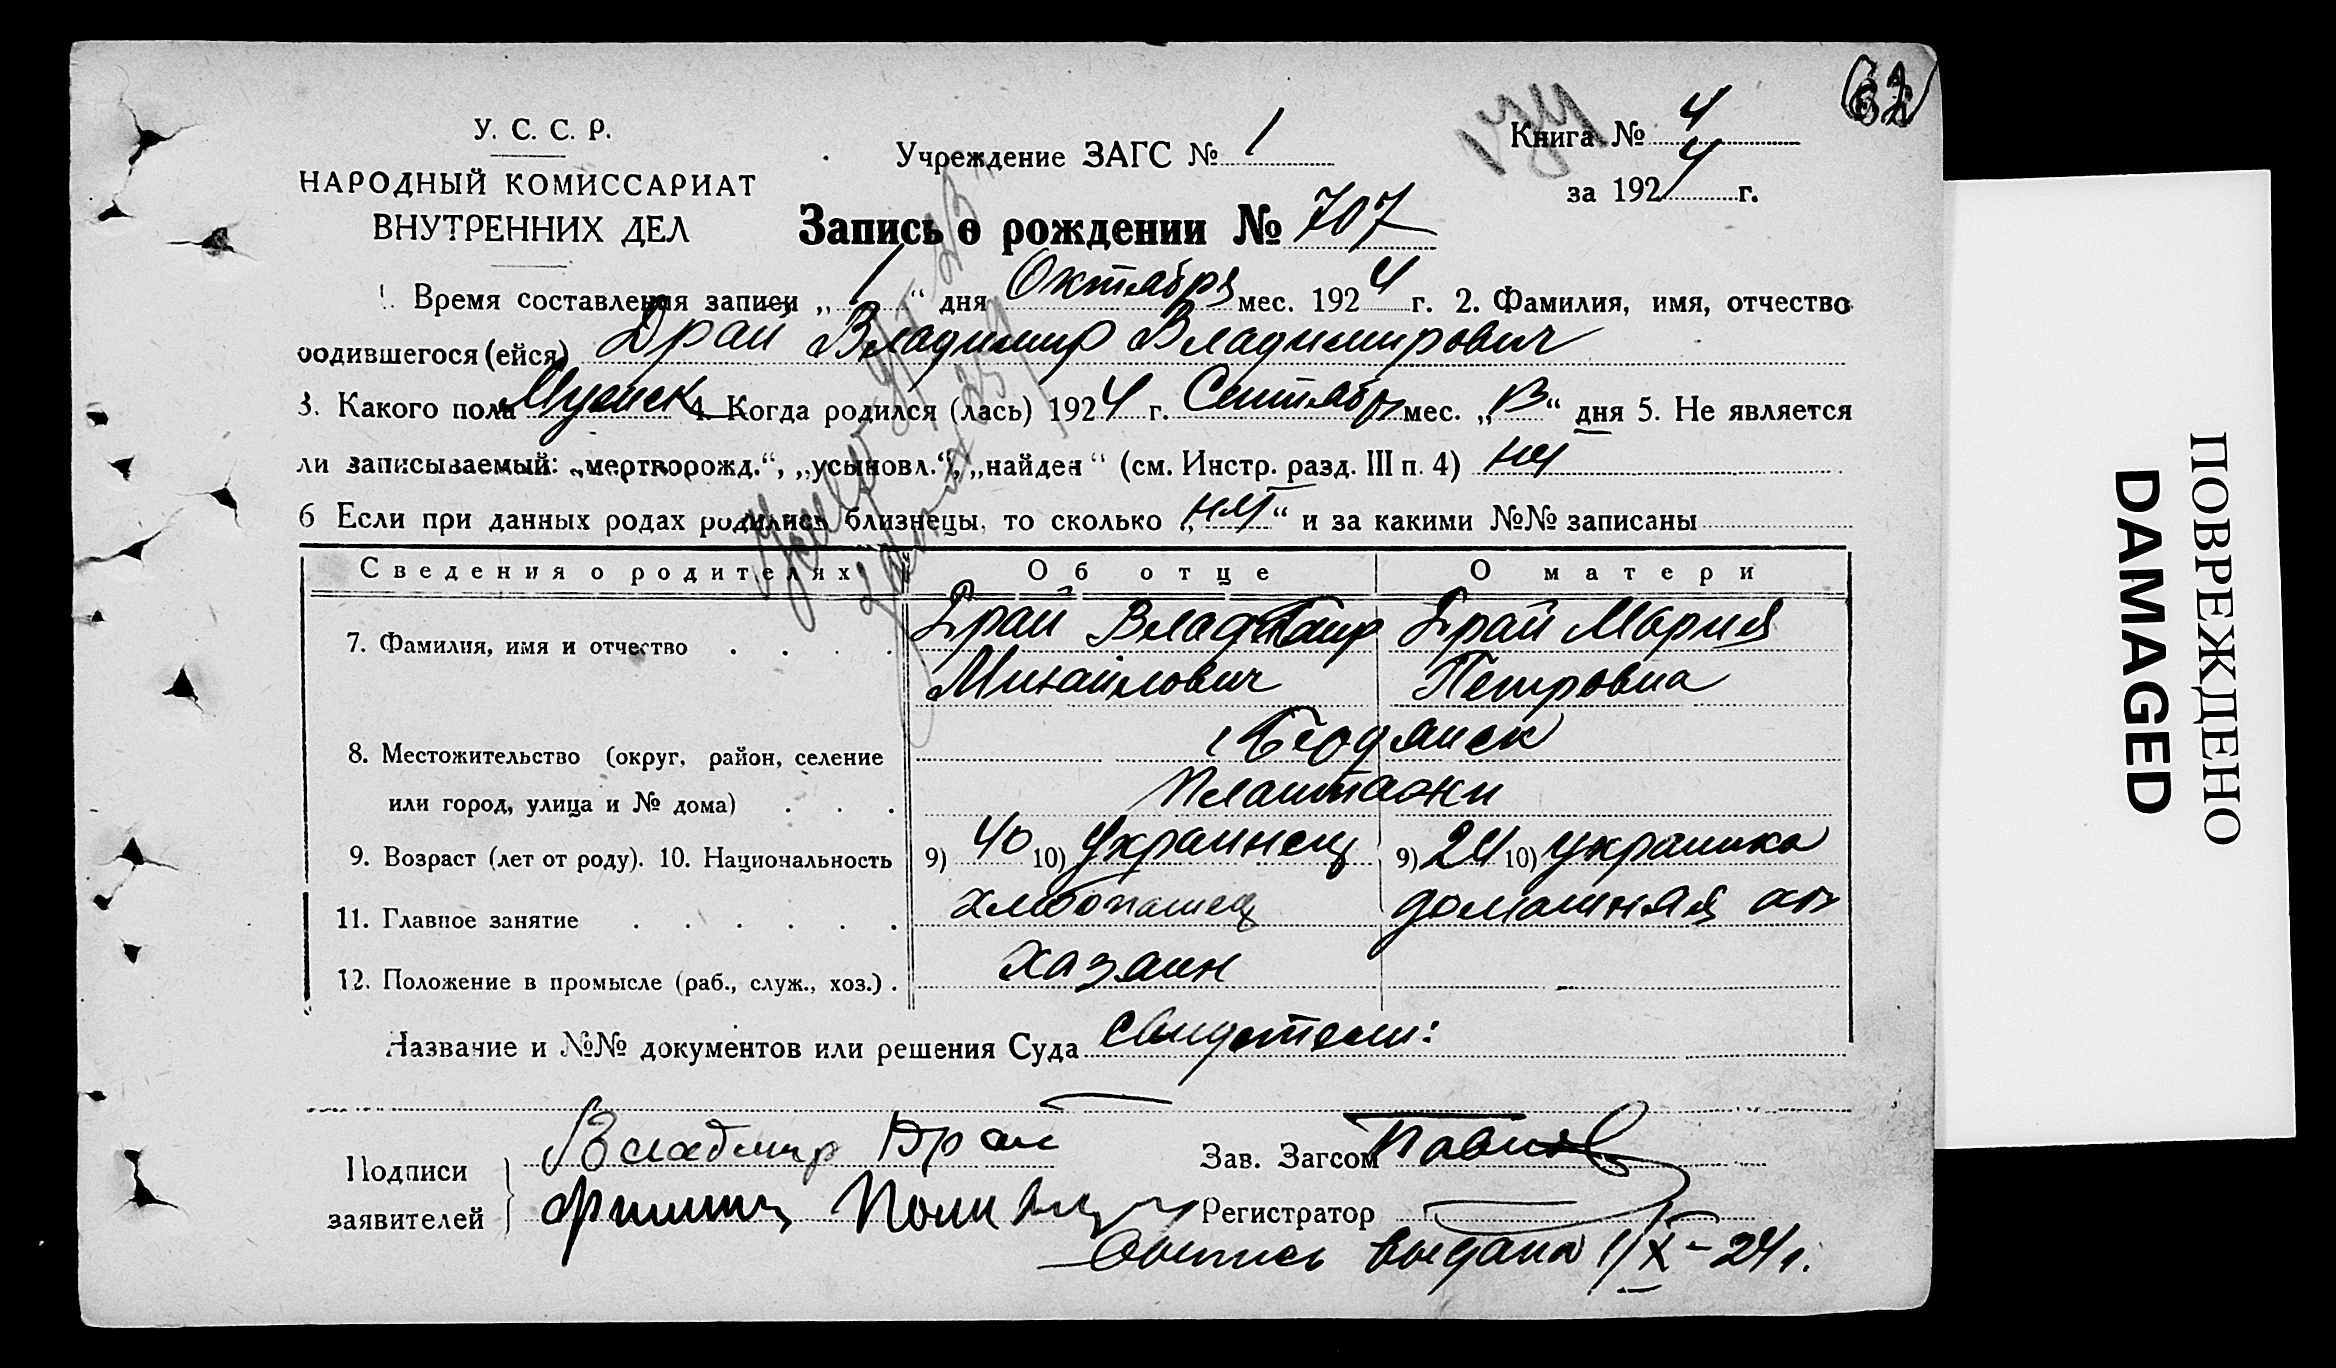 У. С. С. Р.
НАРОДНЫЙ КОМИССАРИАТ
ВНУТРЕННИХ ДЕЛ
Учреждение ЗАГС № 1
Книга № 4
за 1924 г.
Запись о рождении № 707
1. Время составления записи „1“ дня Октября мес. 1924 г. 2. Фамилия, имя, отчество
родившегося (ейся) Драй Владимир Владимирович
3. Какого пола Мужск 4. Когда родился (лась) 1924 г. Сентябр мес. „13“ дня 5. Не является
ли записываемый: „мертворожд.“, „усыновл.“, „найден“ (см. Инстр. разд. III п. 4) нет
6 Если при данных родах родились близнецы, то сколько „нет“ и за какими №№ записаны
Сведения о родителях Об отце О матери
7. Фамилия, имя и отчество Драй Владимир Драй Мария
Михайлович Петровна
8. Местожительство (округ, район, селение
или город, улица и № дома)
9. Возраст (лет от роду). 10. Национальность 9) 40 10) Украинец 9) 24 10) украинка
11. Главное занятие хлебопашец домашняя
12. Положение в промысле (раб., служ., хоз.) хазаин
Название и №№ документов или решения Суда свидетели:
Подписи заявителей Владимир Драй
Филипп
Зав. Загсом Павлов
Регистратор
Выпись выдана 1/X-24 г.
ПОВРЕЖДЕНО
DAMAGED